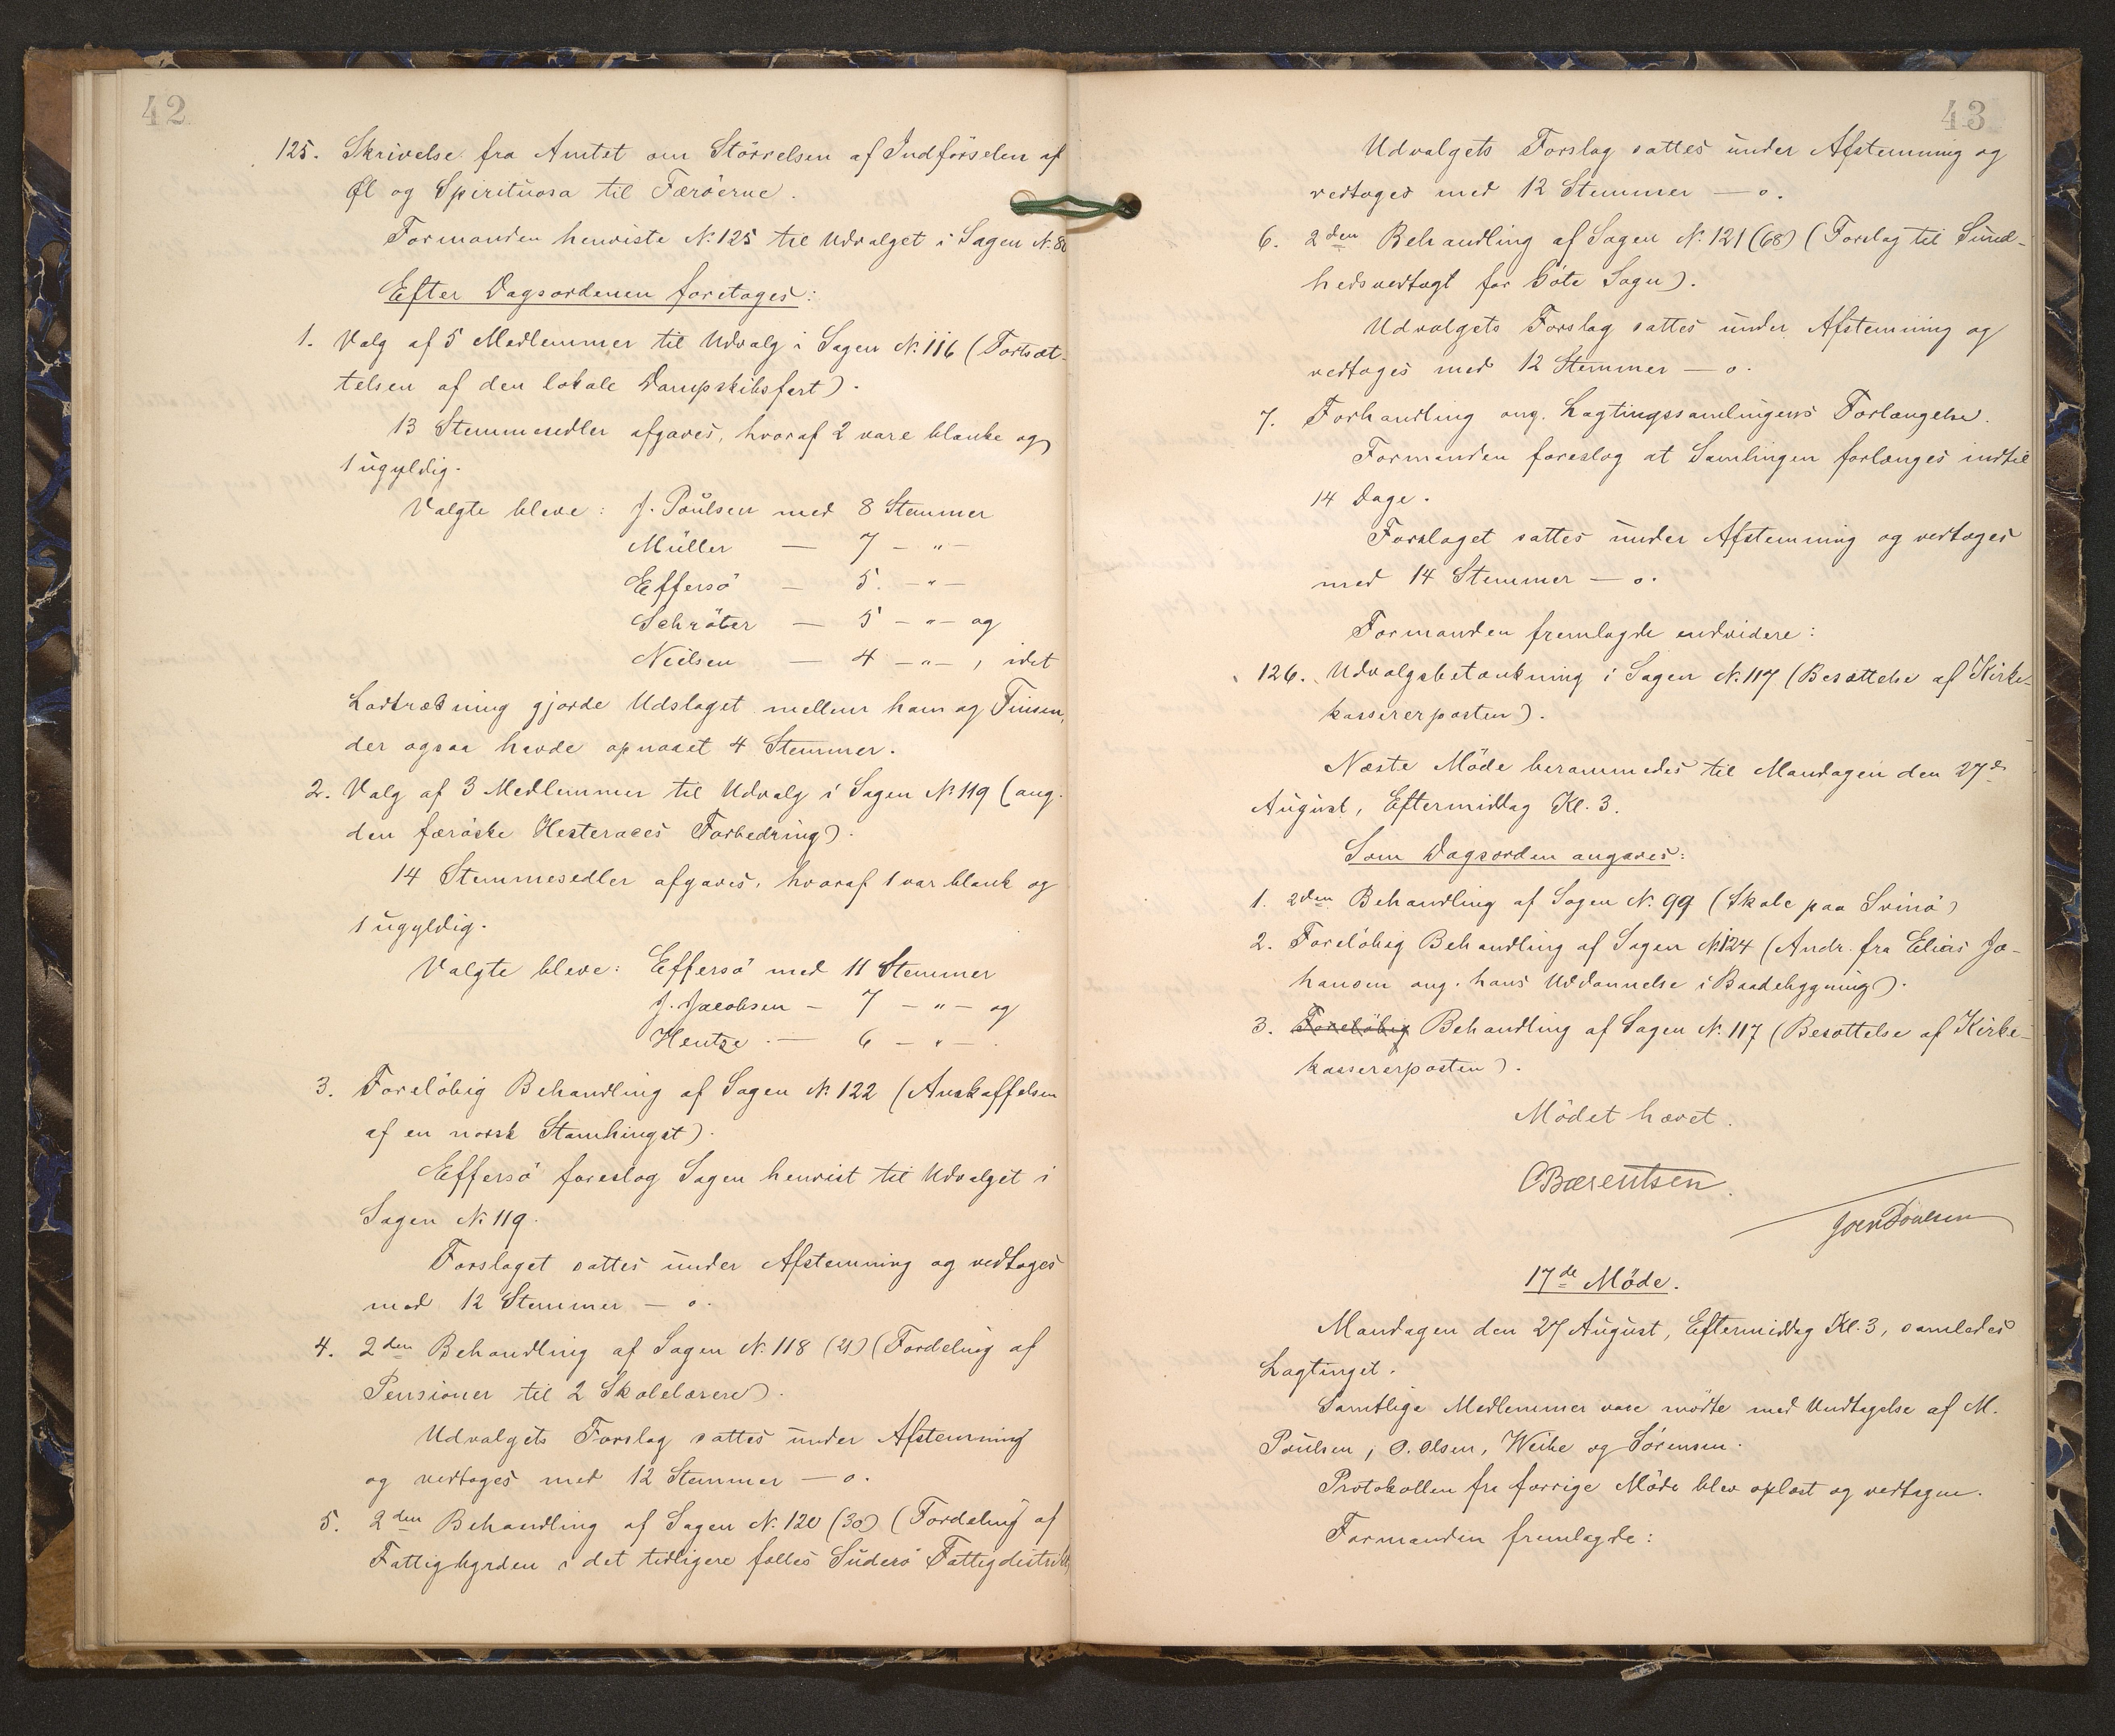 42
125. Skrivelse fra Amtet om Störrelsen af Indförselen af
Øl og Spirituosa til Færöerne.
Formanden henviste N. 125 til Udvalget i Sagen N. 80
Efter Dagsordenen foretoges:
1. Valg af 5 Medlemmer til Udvalg i Sagen N. 116 (Fortsæt-
telsen af den lokale Dampskibsfart).
13 Stemmesedler afgaves, hvoraf 2 vare blanke og
1 ugyldig.
Valgte bleve: J. Poulsen med 8 Stemmer
Müller — 7 — " —
Effersö — 5. — " —
Schröter — 5 — " — og
Neilsen — 4 — " — , idet
Lodtrækning gjorde Udslaget mellem ham og Finsen,
der ogsaa havde opnaaet 4 Stemmer.
2. Valg af 3 Medlemmer til Udvalg i Sagen N. 119 (ang.
den færöske Hesteraces Forbedring).
14 Stemmesedler afgaves, hvoraf 1 var blank og
1 ugyldig.
Valgte bleve: Effersö med 11 Stemmer
J. Jacobsen — 7 — " — og
Hentze. — 6 — " — .
3. Forelöbig Behandling af Sagen N. 122 (Anskaffelsen
af en norsk Stamhingst).
Effersö foreslog Sagen henvist til Udvalget i
Sagen N. 119.
Forslaget sattes under Afstemning og vedtoges
med 12 Stemmer — o.
4. 2den Behandling af Sagen N. 118 (21) (Fordeling af
Pensioner til 2 Skolelærere).
Udvalgets Forslag sattes under Afstemning
og vedtoges med 12 Stemmer — o.
5. 2den Behandling af Sagen N. 120 (30) (Fordeling af
Fattigbyrden i det tidligere fælles Suderö Fattigdistrikt)
43
Udvalgets Forslag sattes under Afstemning og
vedtoges med 12 Stemmer — o.
6. 2den Behandling af Sagen N. 121 (68) (Forslag til Sund-
hedsvedtægt for Göte Sogn).
Udvalgets Forslag sattes under Afstemning og
vedtoges med 12 Stemmer — o.
7. Forhandling ang. Lagtingssamlingens Forlængelse.
Formanden foreslog at Samlingen forlænges indtil
14 Dage.
Forslaget sattes under Afstemning og vedtoges
med 14 Stemmer — o.
Formanden fremlagde endvidere:
126. Udvalgsbetænkning i Sagen N. 117 (Besættelse af Kirke-
kassererposten).
Næste Möde berammedes til Mandagen den 27de
August, Eftermiddag Kl. 3.
Som Dagsorden angaves:
1. 2den Behandling af Sagen N. 99 (Skole paa Svinö)
2. Forelöbig Behandling af Sagen N. 124 (Andr. fra Elias Jo-
hansen ang. hans Uddannelse i Baadebygning).
3. Forelöbig Behandling af Sagen N. 117 (Besættelse af Kirke-
kassererposten).
Mödet hævet.
C Bærentsen.
Joen Poulsen
17de Möde.
Mandagen den 27 August, Eftermiddag Kl. 3, samledes
Lagtinget.
Samtlige Medlemmer vare mödte med Undtagelse af M.
Poulsen, O. Olsen, Weihe og Sörensen.
Protokollen fra forrige Möde blev oplæst og vedtagen.
Formanden fremlagde: